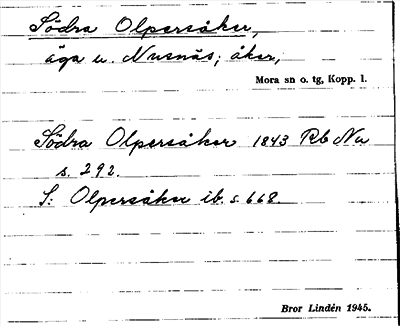 Södra Olpersåker,
äga u. Nusnäs; åker;
Mora sn o. tg, Kopp. l.
Södra Olpersåker 1843 Rb Nu
s. 292.
S. Olpersåker ib. s. 668.
Bror Lindén 1945.